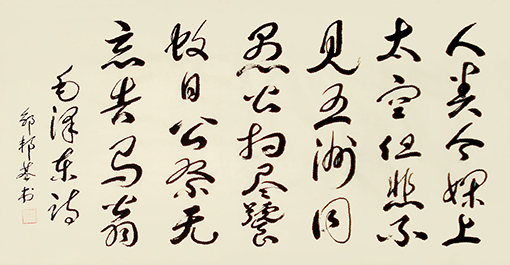 人类今娴上
太空但悲不
见五洲同
愚公扫尽饕
蚊日公祭无
忘告马翁
毛泽东诗
邦书